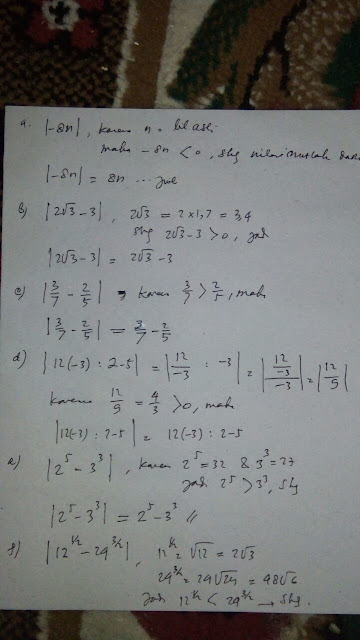 a. |-8n|, karena n = bil asli
maka -8n < 0, shg nilai mutlak dari
|-8n| = 8n
b) |2√3 - 3|, 2√3 = 2 x 1,7 = 3,4
shg 2√3-3 > 0, jadi
|2√3-3| = 2√3 - 3
c) |3/7 - 2/5| → karena 3/7 > 2/5, maka
|3/7 - 2/5| = 3/7 - 2/5
d) |12(-3) : 2-5| = |12/-3 : -3| = |12/-3/-3| = |12/9|
karena 12/9 = 4/3 > 0, maka
|12(-3) : 2-5| = 12(-3) : 2-5
e) |2⁵ - 3³|, karena 2⁵ = 32 & 3³ = 27
jadi 2⁵ > 3³, shg
|2⁵ - 3³| = 2⁵ - 3³ //
f) |12^½ - 24^3/2|, 12^½ = √12 = 2√3
24^3/2 = 24√24 = 48√6
jadi 12^½ < 24^3/2 → shg.